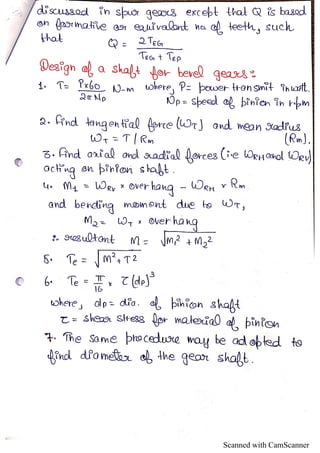 discussed in spur gears except that Q is based
on formative or equivalent no of teeth, such
that Q = 2TEG / TEG + TEP
Design of a shaft for bevel gears :-
1. T = P×60 / 2πNp N-m where, P = power transmit in watt.
Np = speed of pinion in r.p.m
2. Find tangential force (WT) and mean radius
WT = T / Rm (Rm).
3. Find axial and radial forces (i.e WRH and WRV)
acting on pinion shaft.
4. M1 = WRV × overhang - WRH × Rm
and bending moment due to WT,
M2 = WT × overhang
∴ resultant M = √M1² + M2²
5. Te = √M² + T2
6. Te = π/16 × τ (dp)³
where, dp = dia. of pinion shaft
τ = shear stress for material of pinion
7. The same procedure may be adopted to
find diameter of the gear shaft.
Scanned with CamScanner